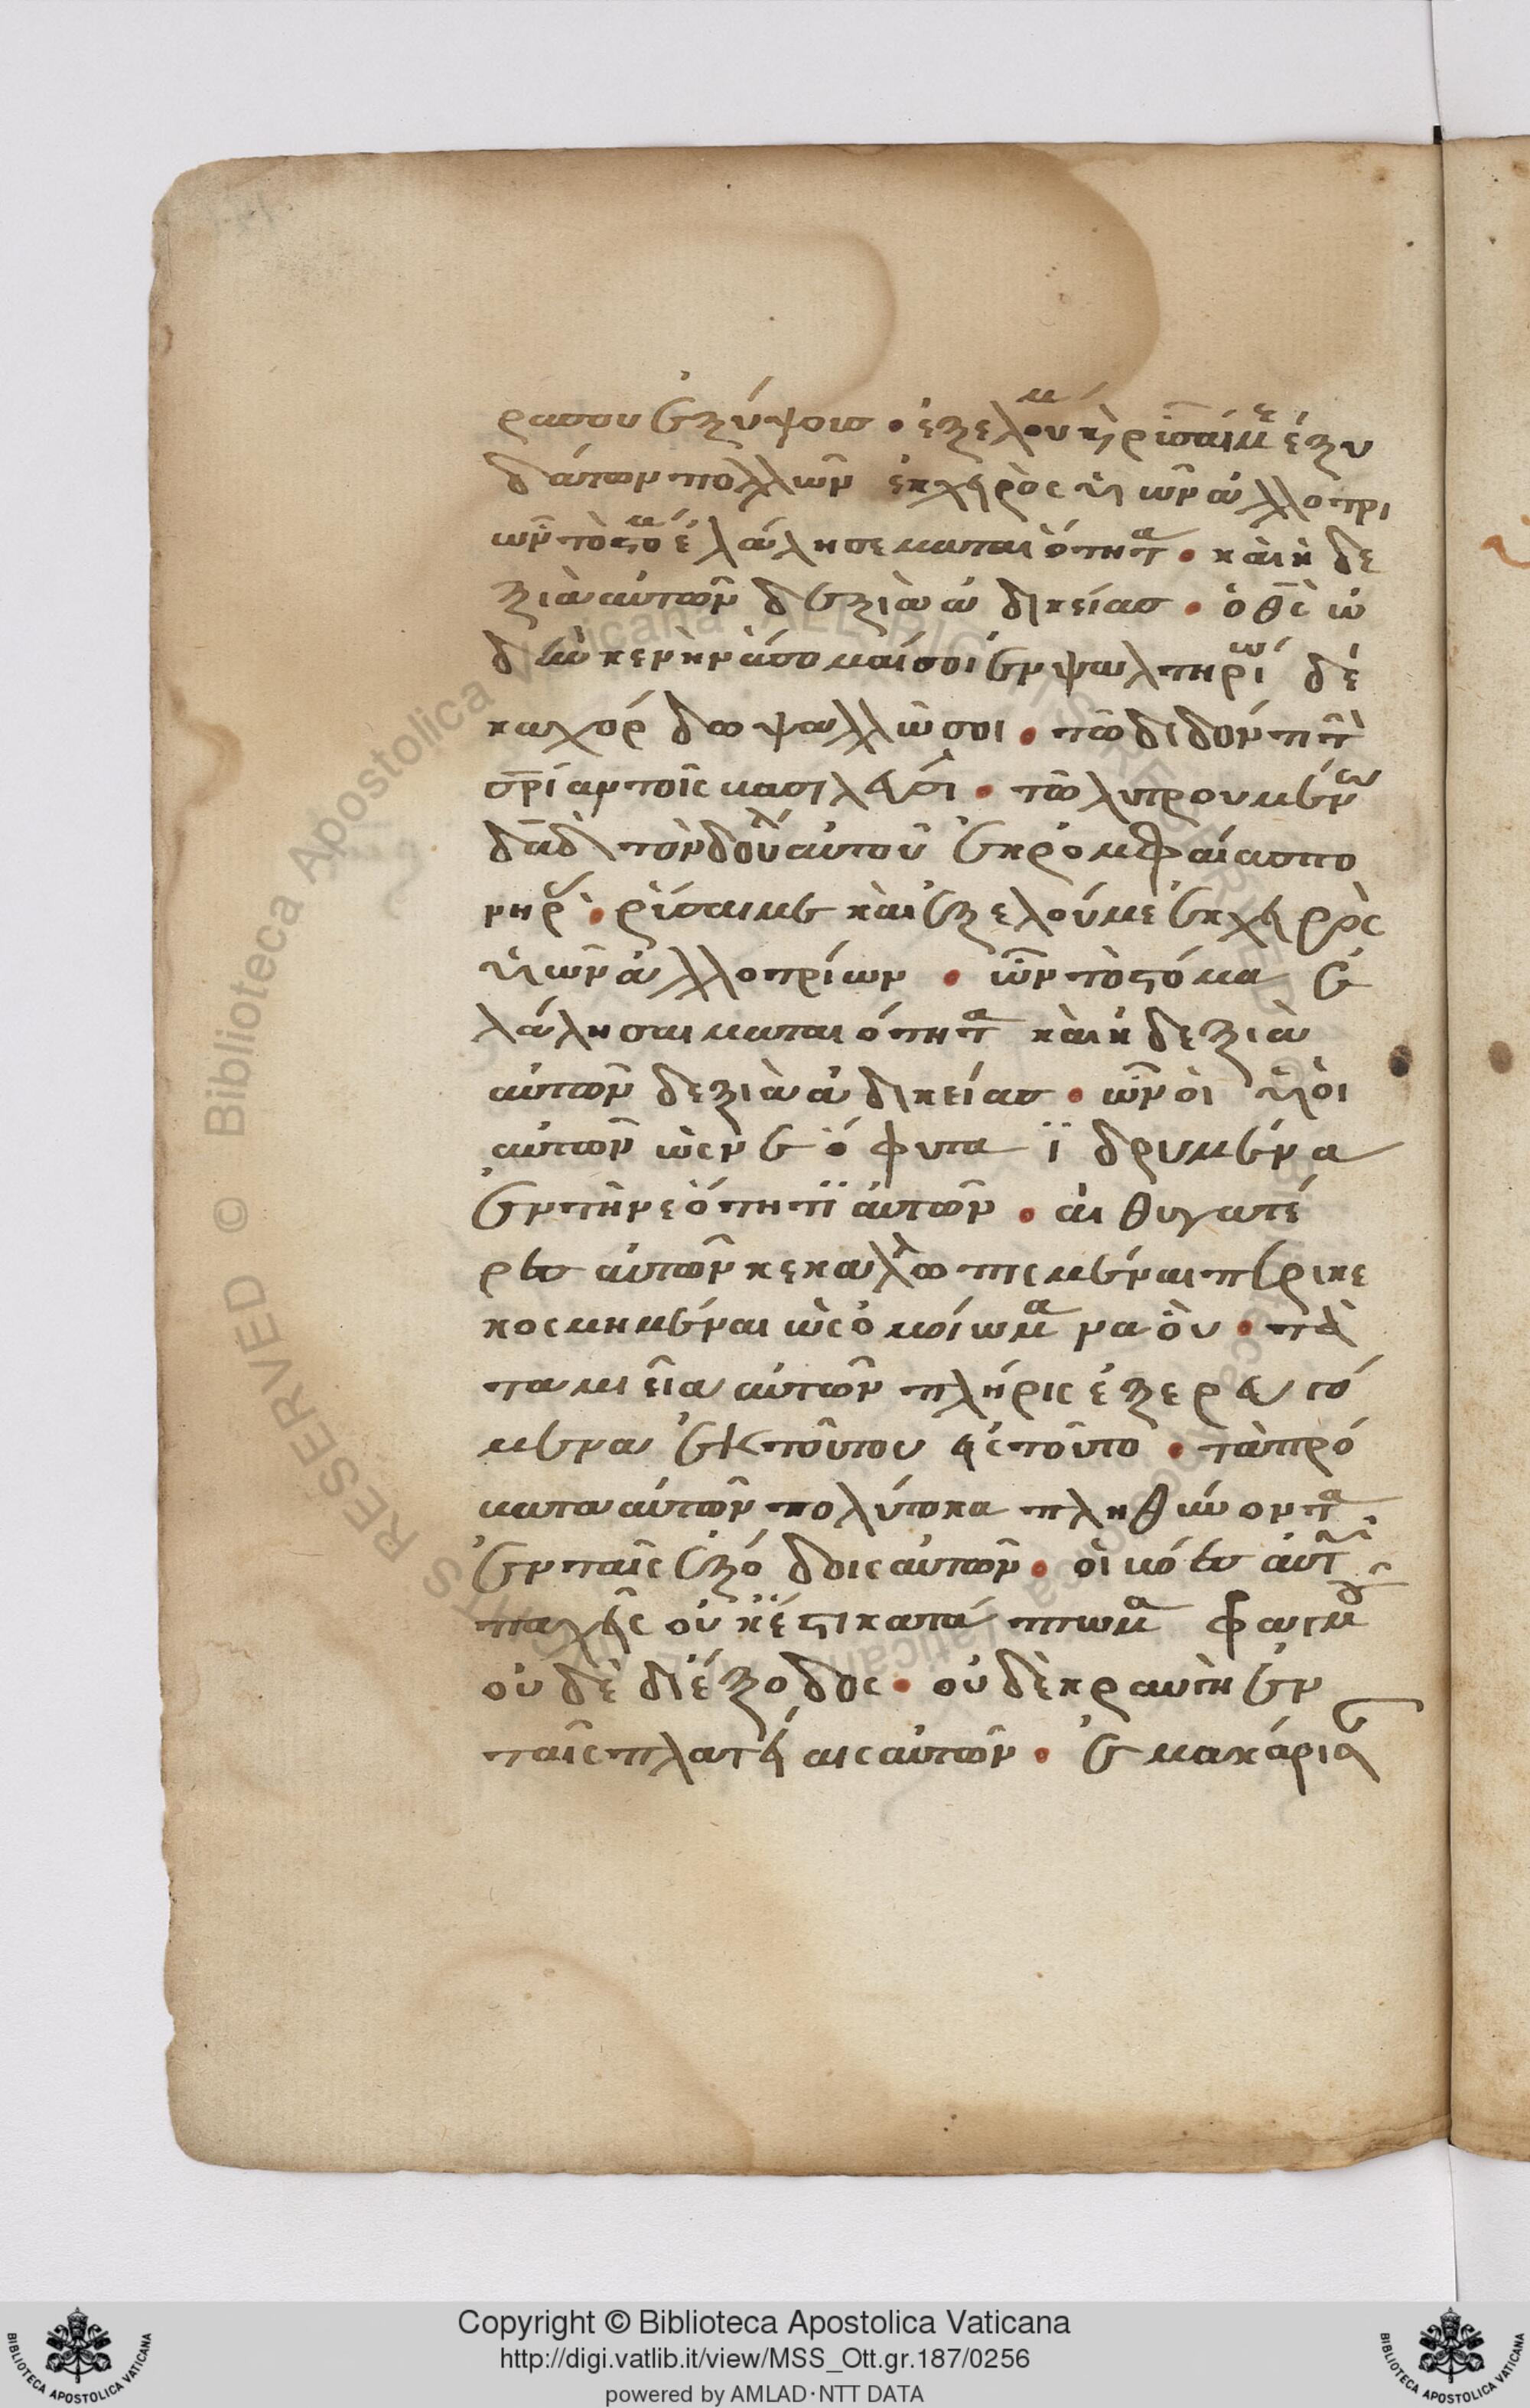 ρασου ἐξύψοισ · ἐξελοῦ κὴ ρίσαι με ἐξ υ
δάτων πολλῶν ἐκ χειρὸς υἱῶν ἀλλοτρι
ῶν τὸ στόμα ἐλάλησε ματαιότητα · καὶ ἡ δε
ξιὰ αὐτῶν δεξιὰ ἀδικείασ · ὁ θς ὠ
δὴν κενὴν ἄσομαί σοι ἐν ψαλτηρίω δε
καχόρδω ψαλλῶ σοι · τῶ διδόντι τὴ
σρίαν τοῖς βασιλεῦσι · τῶ λυτρουμένω
δαδ τὸν δοῦλ αὐτοῦ ἐκ ρομφαίασ πο
νηρᾶ · ρίσαι με καὶ ἐξελοῦ με ἐκ χειρὸς
υἱῶν ἀλλοτρίων · ὧν τὸ στόμα ἐ
λάλησαι ματαιότητα καὶ ἡ δεξιὰ
αὐτῶν δεξιὰ ἀδικείασ · ὧν οἱ υἱοὶ
αὐτῶν ὡς νεόφυτα ϊδρυμένα
ἐν τῆ νεότητϊ αὐτῶν · αἱ θυγατέ
ρεσ αὐτῶν κεκαλλωπισμέναι περικε
κοσμημέναι ὡς ὁμοίωμα ναὸυ · τὰ
ταμιεῖα αὐτῶν πλήρις ἐξερευγό
μενα ἐκ τοῦτου εἰς τοῦτο · τὰ πρό
βατα αὐτῶν πολύτοκα πληθύνοντα
ἐν ταῖς ἐξόδοις αὐτῶν · οἱ βόεσ αὐτῶν
παχεῖς οὐκ ἔστι κατάπτωμα φραγμοῦ
οὐδὲ διέξοδος · οὐδὲ κραυγὴ ἐν
ταῖς πλατείαις αὐτῶν · ἐμακάρισ
Copyright © Biblioteca Apostolica Vaticana
http://digi.vatlib.it/view/MSS_Ott.gr.187/0256
powered by AMLAD·NTT DATA